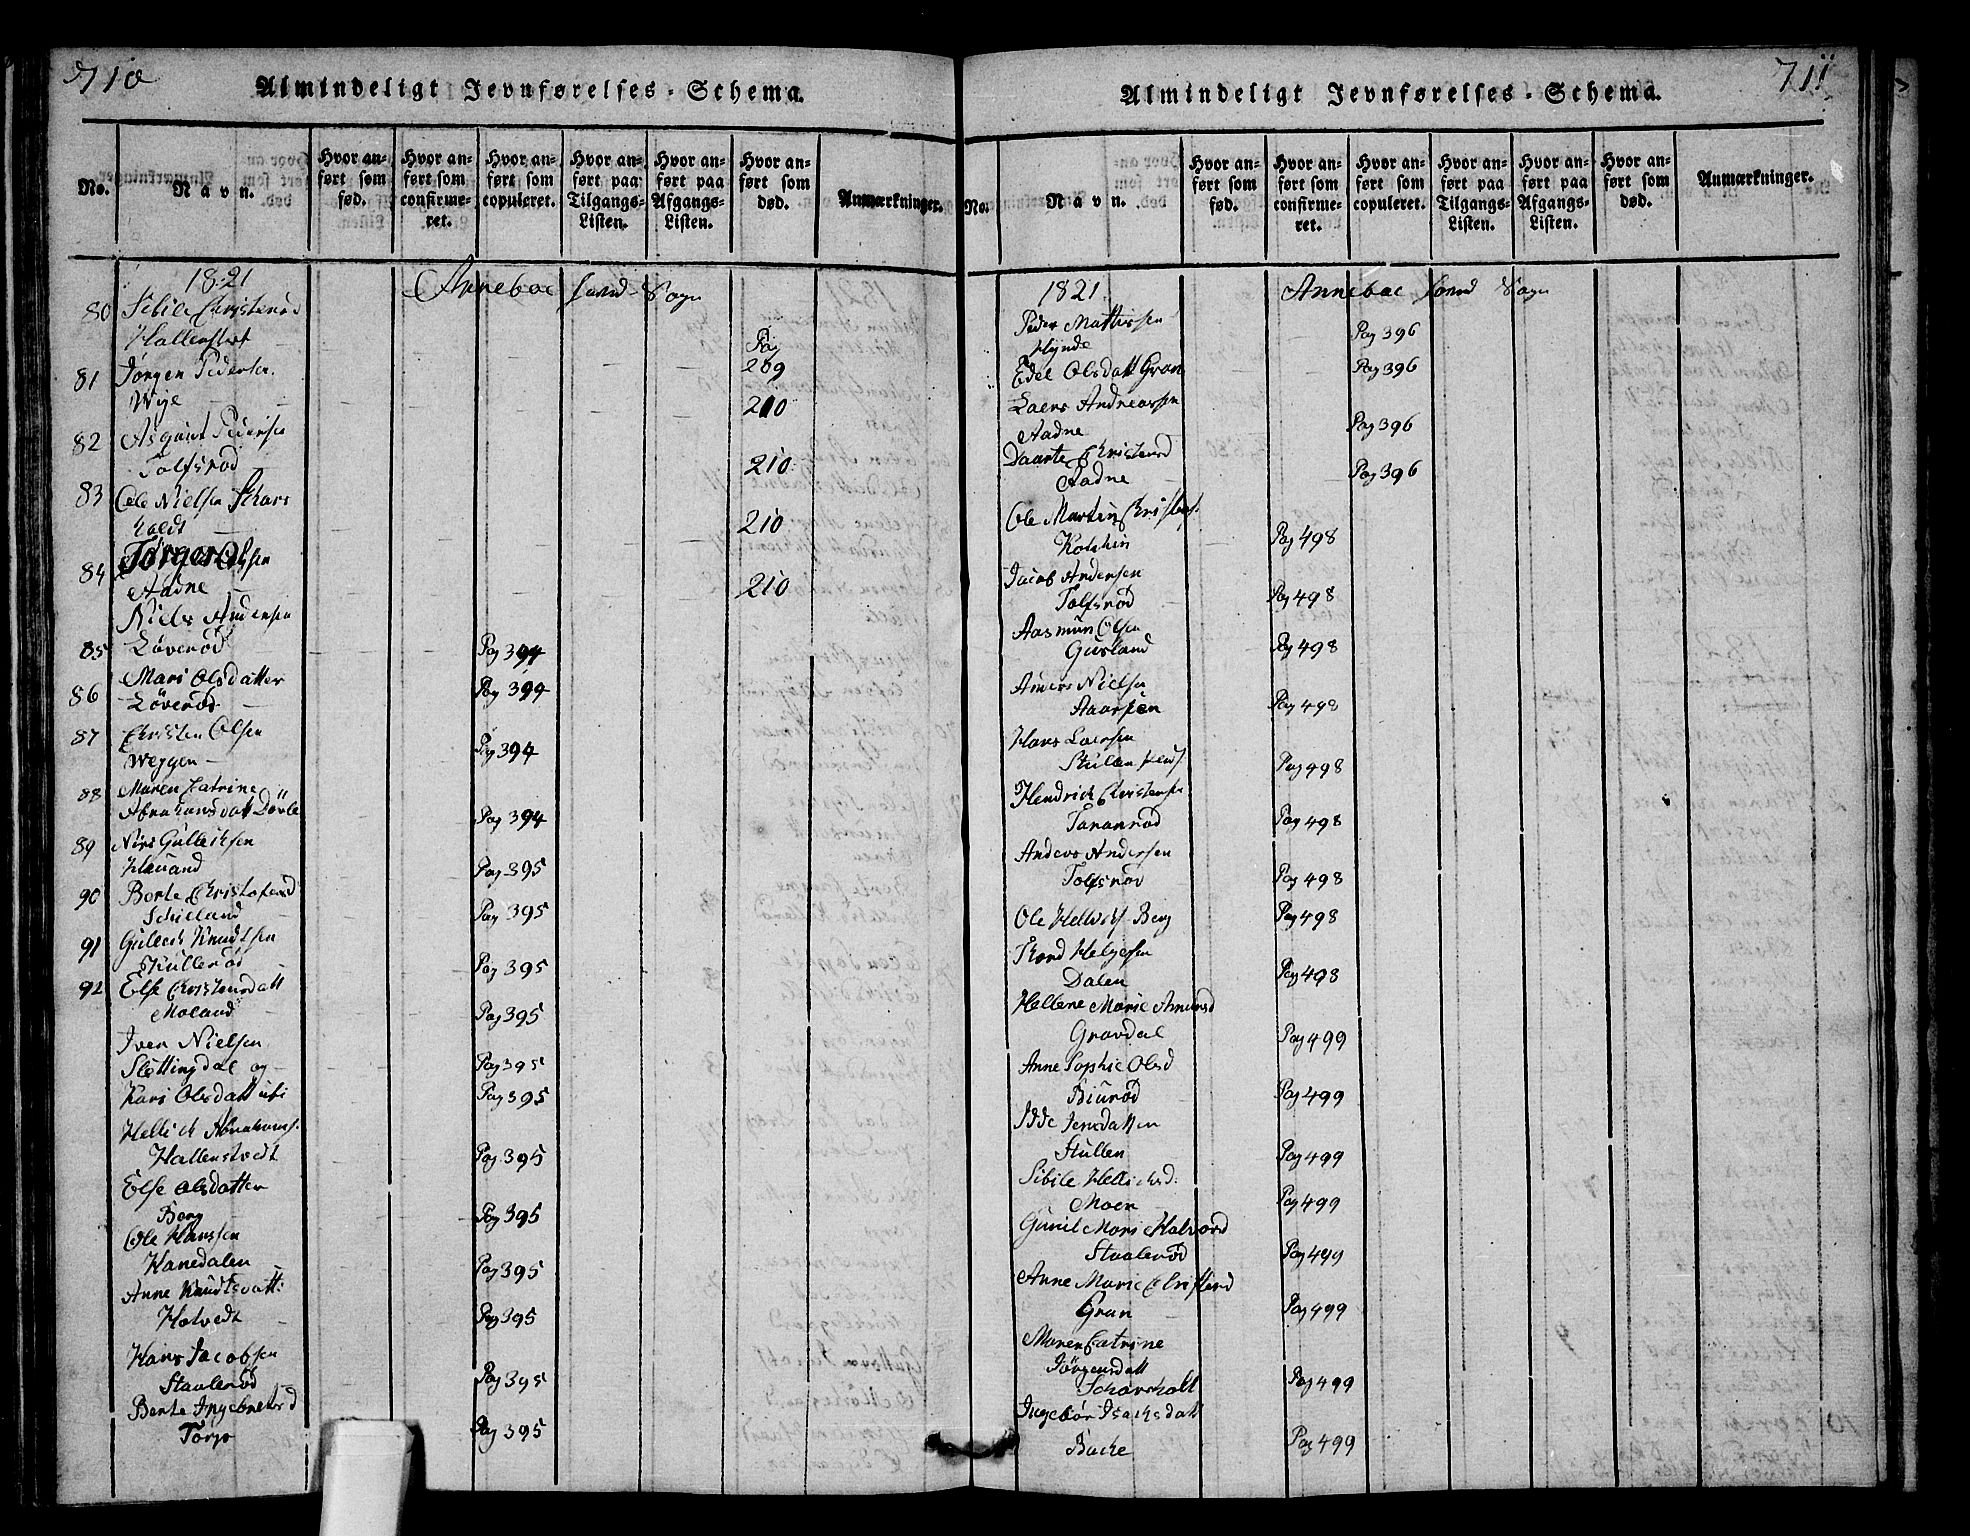 710
Almindeligt Jevnførelses-Schema.
No.
Navn.
Hvor anført som fød.
Hvor anført som confirmeret.
Hvor anført som copuleret.
Hvor anført paa Tilgangs-Listen.
Hvor anført paa Afgangs-Listen.
Hvor anført som død.
Anmærkninger.
1821 Anneboe Sogn
80 Sibile Christensd
Hallenstvet Pag 209
81 Jörgen Pedersen
Wye 210
82 Asgout Pedersen
Tolfsröd 210
83 Ole Nielsen Skars
holdt 210
84 Törger Olsen
Aadne 210
Niels Andersen
85 Löveröd Pag 394
Mari Olsdatter
86 Löveröd Pag 394
87 Christen Olsen
Weggen Pag 394
88 Maren Catrine
Abrahamsdatt Dövle Pag 394
89 Nirs Gulleichsen
Hauand Pag 395
90 Berte Christofersd
Schieland Pag 395
91 Gulech Knudtsen
Skulleröd Pag 395
92 Else Christensdatt
Moland Pag 395
Iver Nielsen
Slettingdal og Pag 395
Kari Olsdatt ibi Pag 395
Hellich Abrahams.
Hallenstvedt Pag 395
Else Olsdatter
Berg Pag 395
Ole Hanssen
Hanedalen Pag 395
Anne Knudtsdatt:
Hotvedt Pag 395
Hans Jacobsen
Staaleröd Pag 395
Berte Ingebretsd
Torp Pag 395
711
Almindeligt Jevnførelses-Schema.
No.
Navn.
Hvor anført som fød.
Hvor anført som confirmeret.
Hvor anført som copuleret.
Hvor anført paa Tilgangs-Listen.
Hvor anført paa Afgangs-Listen.
Hvor anført som død.
Anmærkninger.
1821. Anneboe Sogn
Peder Mathissen
Hynde Pag 396
Edel Olsdatt Gran Pag 396
Laers Andreassen
Aadne Pag 396
Daarte Christensd
Aadne Pag 396
Ole Martin Christens.
Holshin Pag 498
Jacob Andersen
Tolfsröd Pag 498
Aasmun Olsen
Gusland Pag 498
Anders Nielsen
Aarsten Pag 498
Hans Laersen
Skullen Pag 498
Hendrich Christensen
Taranröd Pag 498
Anders Andersen
Tolfsröd Pag 498
Ole Hellichs Berg Pag 498
Thord Helgesen
Dalen Pag 498
Hellene Marie Amunsd
Gravdal Pag 499
Anne Sophie Olsd
Biuröd Pag 499
Idde Jensdatten
Skullen Pag 499
Sibile Hellichsd:
Moen Pag 499
Gunil Mari Halvord
Staaleröd Pag 499
Anne Marie Christensd
Gran Pag 499
Maren Catrine
Jörgensdatt
Schorsholt Pag 499
Ingebör Isachsdatt
Bache Pag 499